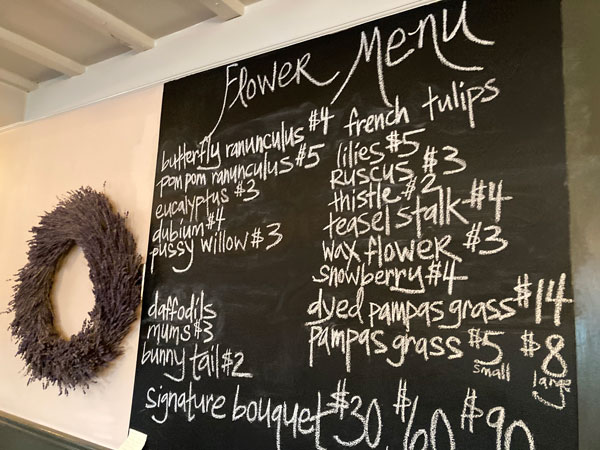 Flower Menu
butterfly ranunculus $4
pom pom ranunculus $5
eucalyptus $3
dubium $4
pussy willow $3
daffodils
mums $3
bunny tail $2
french tulips
lilies $5
Ruscus $3
thistle $2
teasel stalk $4
wax flower $3
snowberry $4
dyed pampas grass $14
pampas grass $5 small $8 large
signature bouquet $30 $60 $90